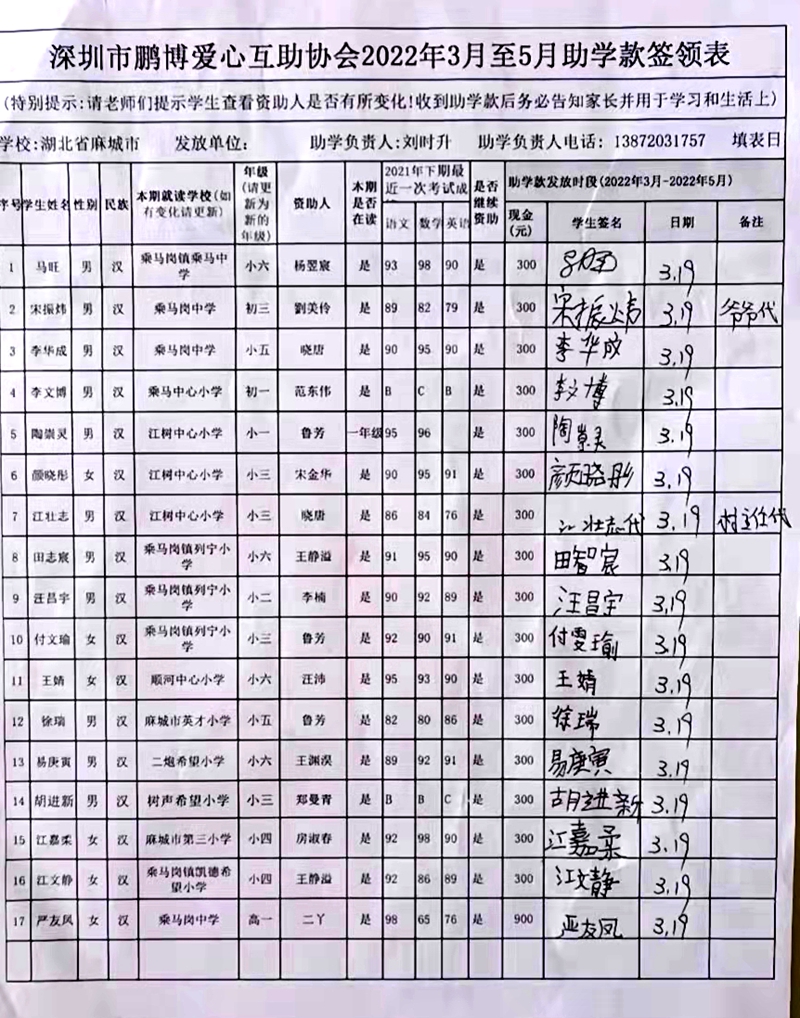 深圳市鹏博爱心互助协会2022年3月至5月助学款签领表
(特别提示:请老师们提示学生查看资助人是否有所变化!收到助学款后务必告知家长并用于学习和生活上)
学校:湖北省麻城市 发放单位: 助学负责人:刘时升 助学负责人电话: 13872031757 填表日
序号 学生姓名 性别 民族 本期就读学校(如有变化请更新) 年级(请更新为新的年级) 资助人 本期是否在读 2021年下期最近一次考试成 语文 数学 英语 是否继续资助 助学款发放时段(2022年3月-2022年5月) 现金(元) 学生签名 日期 备注
1 马旺 男 汉 乘马岗镇乘马中学 小六 杨翌宸 是 93 98 90 是 300 3.19
2 宋振炜 男 汉 乘马岗中学 初三 劉美伶 是 89 82 79 是 300 宋振炜 3.19 爷爷代
3 李华成 男 汉 乘马岗中学 小五 晓唐 是 90 95 90 是 300 李华成 3.19
4 李文博 男 汉 乘马中心小学 初一 范东伟 是 B C B 是 300 李文博 3.19
5 陶崇灵 男 汉 江树中心小学 小一 鲁芳 一年级 95 96 是 300 陶崇灵 3.19
6 颜晓彤 女 汉 江树中心小学 小三 宋金华 是 90 95 91 是 300 颜晓彤 3.19
7 江壮志 男 汉 江树中心小学 小三 晓唐 是 86 84 76 是 300 江壮志代 3.19 村主任代
8 田志宸 男 汉 乘马岗镇列宁小学 小六 王静溢 是 91 95 90 是 300 田智宸 3.19
9 汪昌宇 男 汉 乘马岗镇列宁小学 小二 李楠 是 90 92 89 是 300 汪昌宇 3.19
10 付文瑜 女 汉 乘马岗镇列宁小学 小三 鲁芳 是 92 90 91 是 300 付雯瑜 3.19
11 王婧 女 汉 顺河中心小学 小六 汪沛 是 95 93 90 是 300 王婧 3.19
12 徐瑞 男 汉 麻城市英才小学 小五 鲁芳 是 82 80 86 是 300 徐瑞 3.19
13 易庚寅 男 汉 二炮希望小学 小六 王渊淏 是 89 92 91 是 300 易庚寅 3.19
14 胡进新 男 汉 树声希望小学 小三 郑曼青 是 B B C 是 300 胡进新 3.19
15 江嘉柔 女 汉 麻城市第三小学 小四 房淑春 是 92 98 90 是 300 江嘉柔 3.19
16 江文静 女 汉 乘马岗镇凯德希望小学 小四 王静溢 是 92 86 89 是 300 江文静 3.19
17 严友凤 女 汉 乘马岗中学 高一 二丫 是 98 65 76 是 900 严友凤 3.19